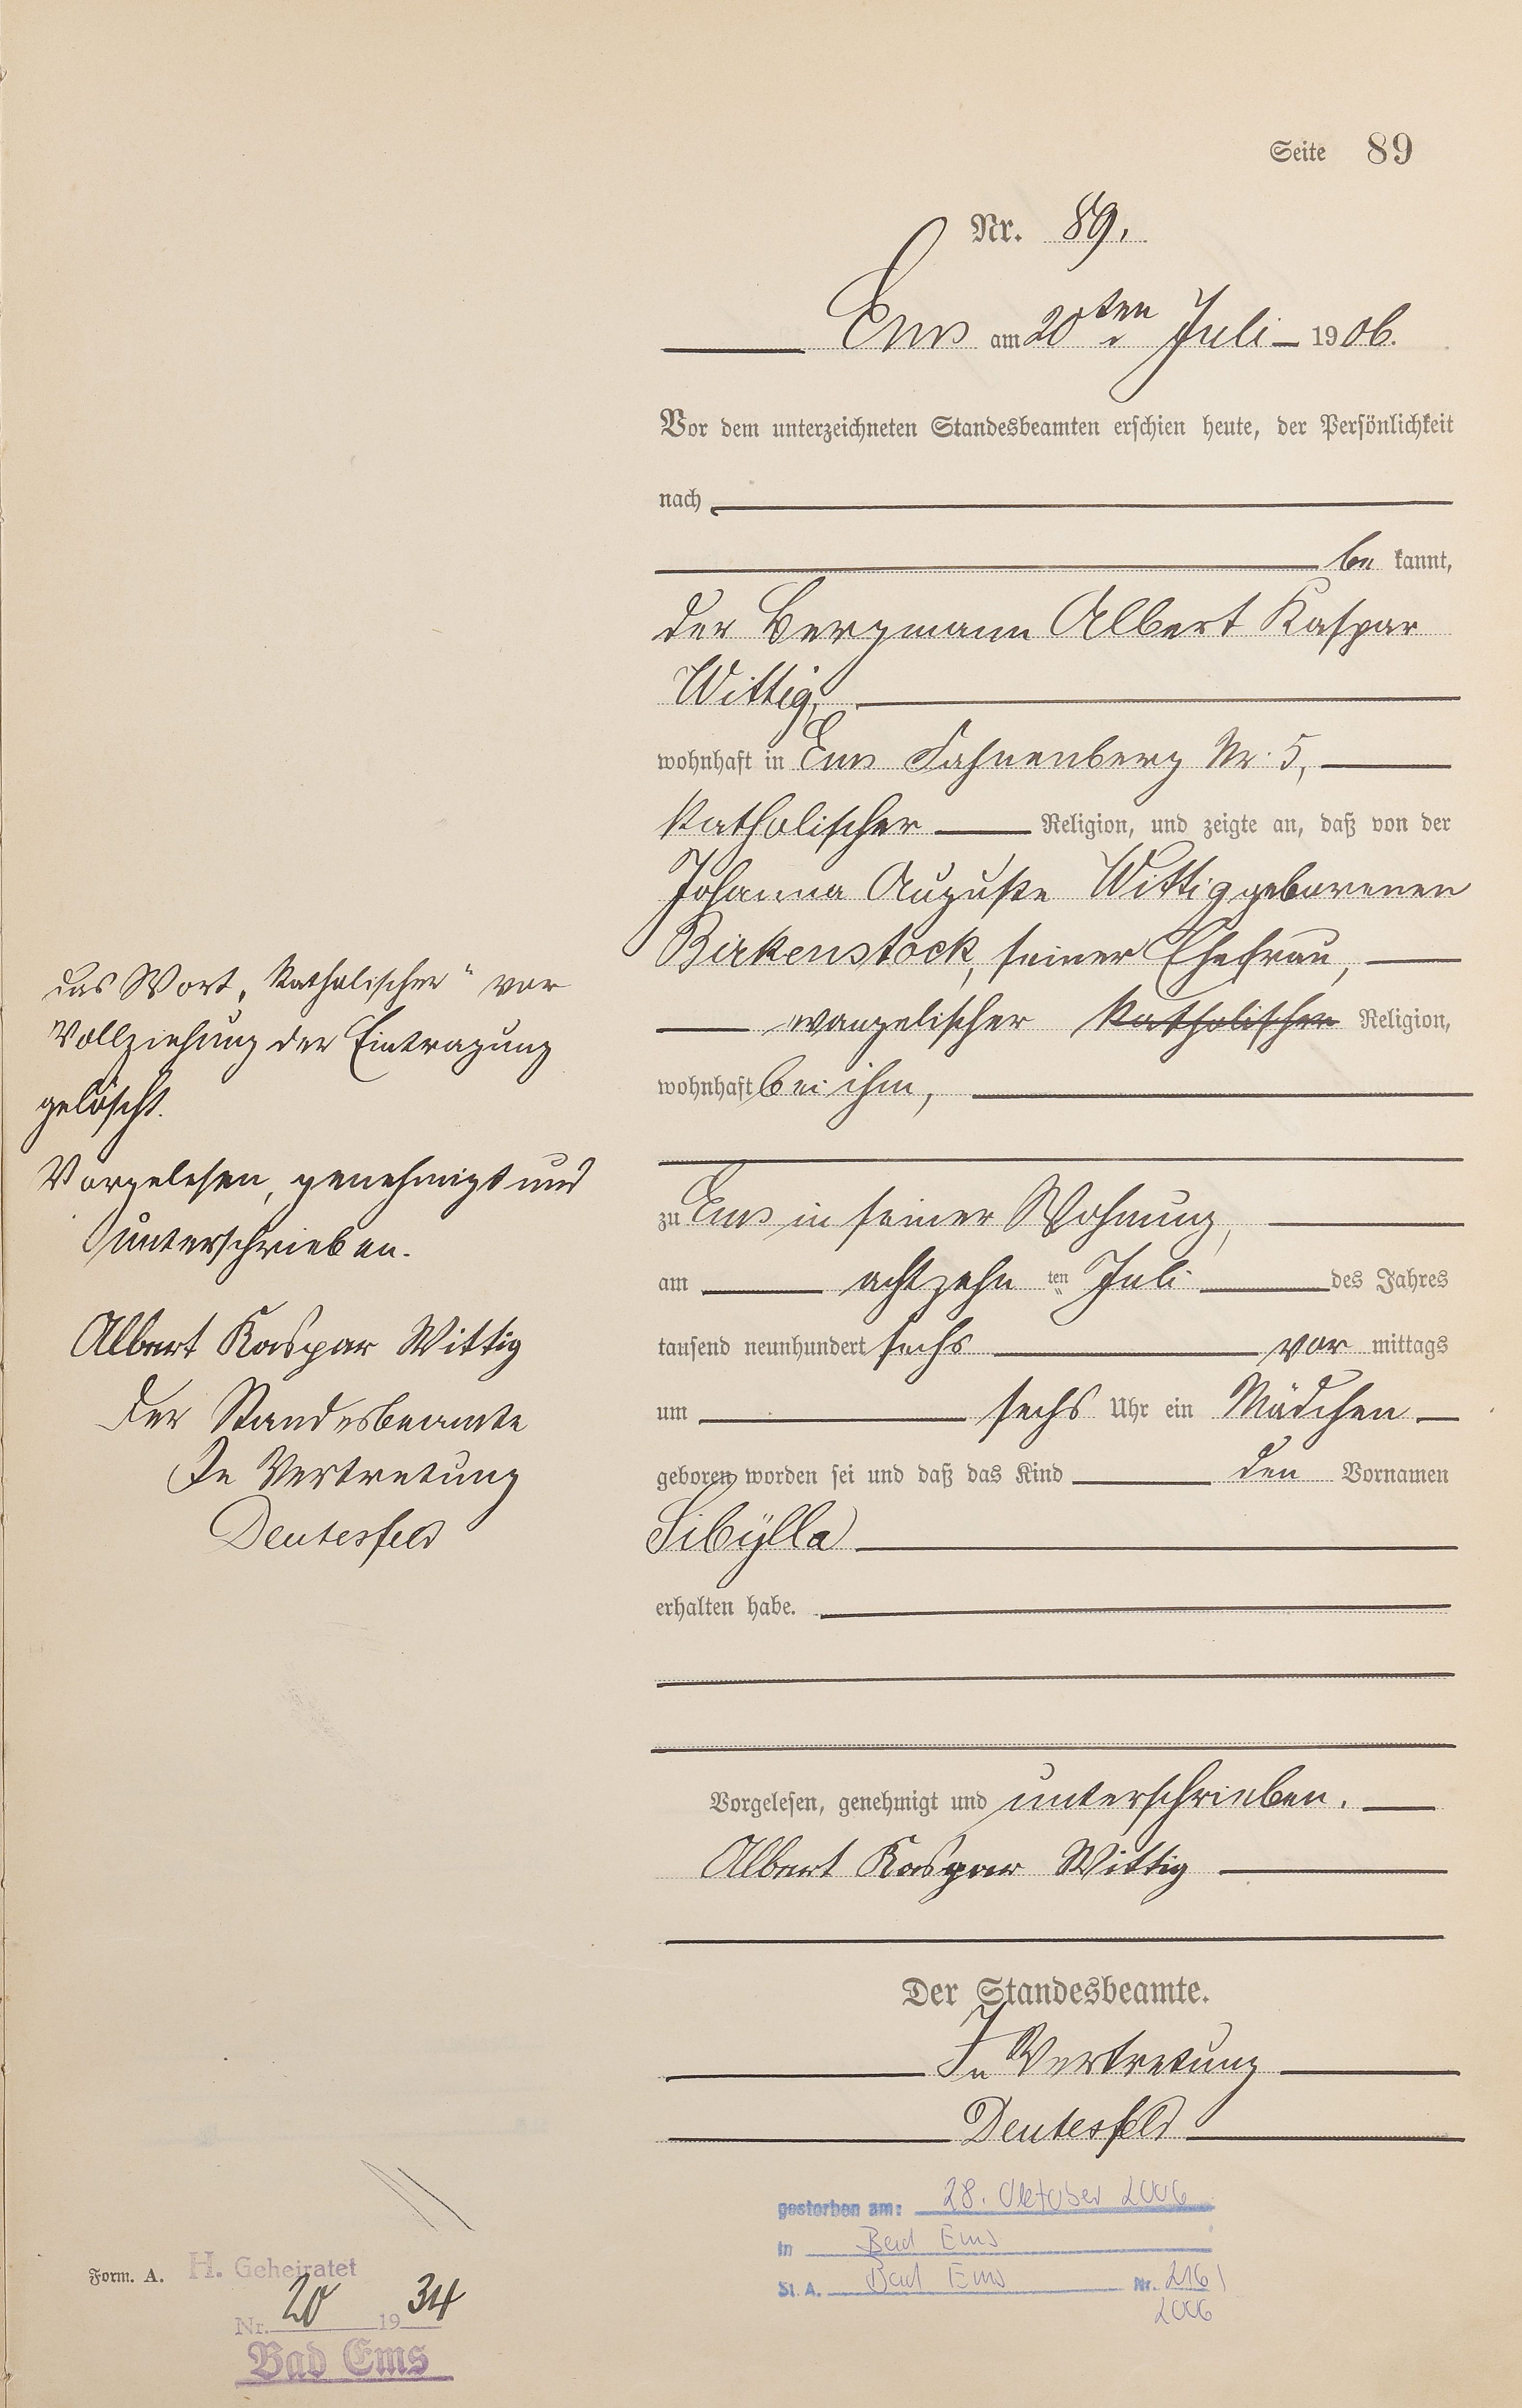 Seite 89
Nr. 89.
Ems am 20ten Juli 1906.
Vor dem unterzeichneten Standesbeamten erschien heute, der Persönlichkeit
nach
be kannt,
der Bergmann Albert Kaspar
Wittig,
wohnhaft in Ems Fahnenberg Nr. 5,
katholischer Religion, und zeigte an, daß von der
Johanna Auguste Wittig geborenen
Birkenstock, seiner Ehefrau,
evangelischer katholischer Religion,
wohnhaft bei ihm,
zu Ems in seiner Wohnung,
am achtzehn ten Juli des Jahres
tausend neunhundert sechs vor mittags
um sechs Uhr ein Mädchen
geboren worden sei und daß das Kind den Vornamen
Sibÿlla
erhalten habe.
Vorgelesen, genehmigt und unterschrieben.
Albert Kaspar Wittig
Der Standesbeamte.
In Vertretung
Deutesfeld
das Wort „katholischer" vor
Vollziehung der Eintragung
gelöscht.
Vorgelesen, genehmigt und
unterschrieben.
Albert Kaspar Wittig
Der Standesbeamte
In Vertretung
Deutesfeld
gestorben am: 28. Oktober 2006
in Bad Ems
St. A. Bad Ems Nr. 216/
2006
Form. A.
H. Geheiratet
Nr. 20 1934
Bad Ems